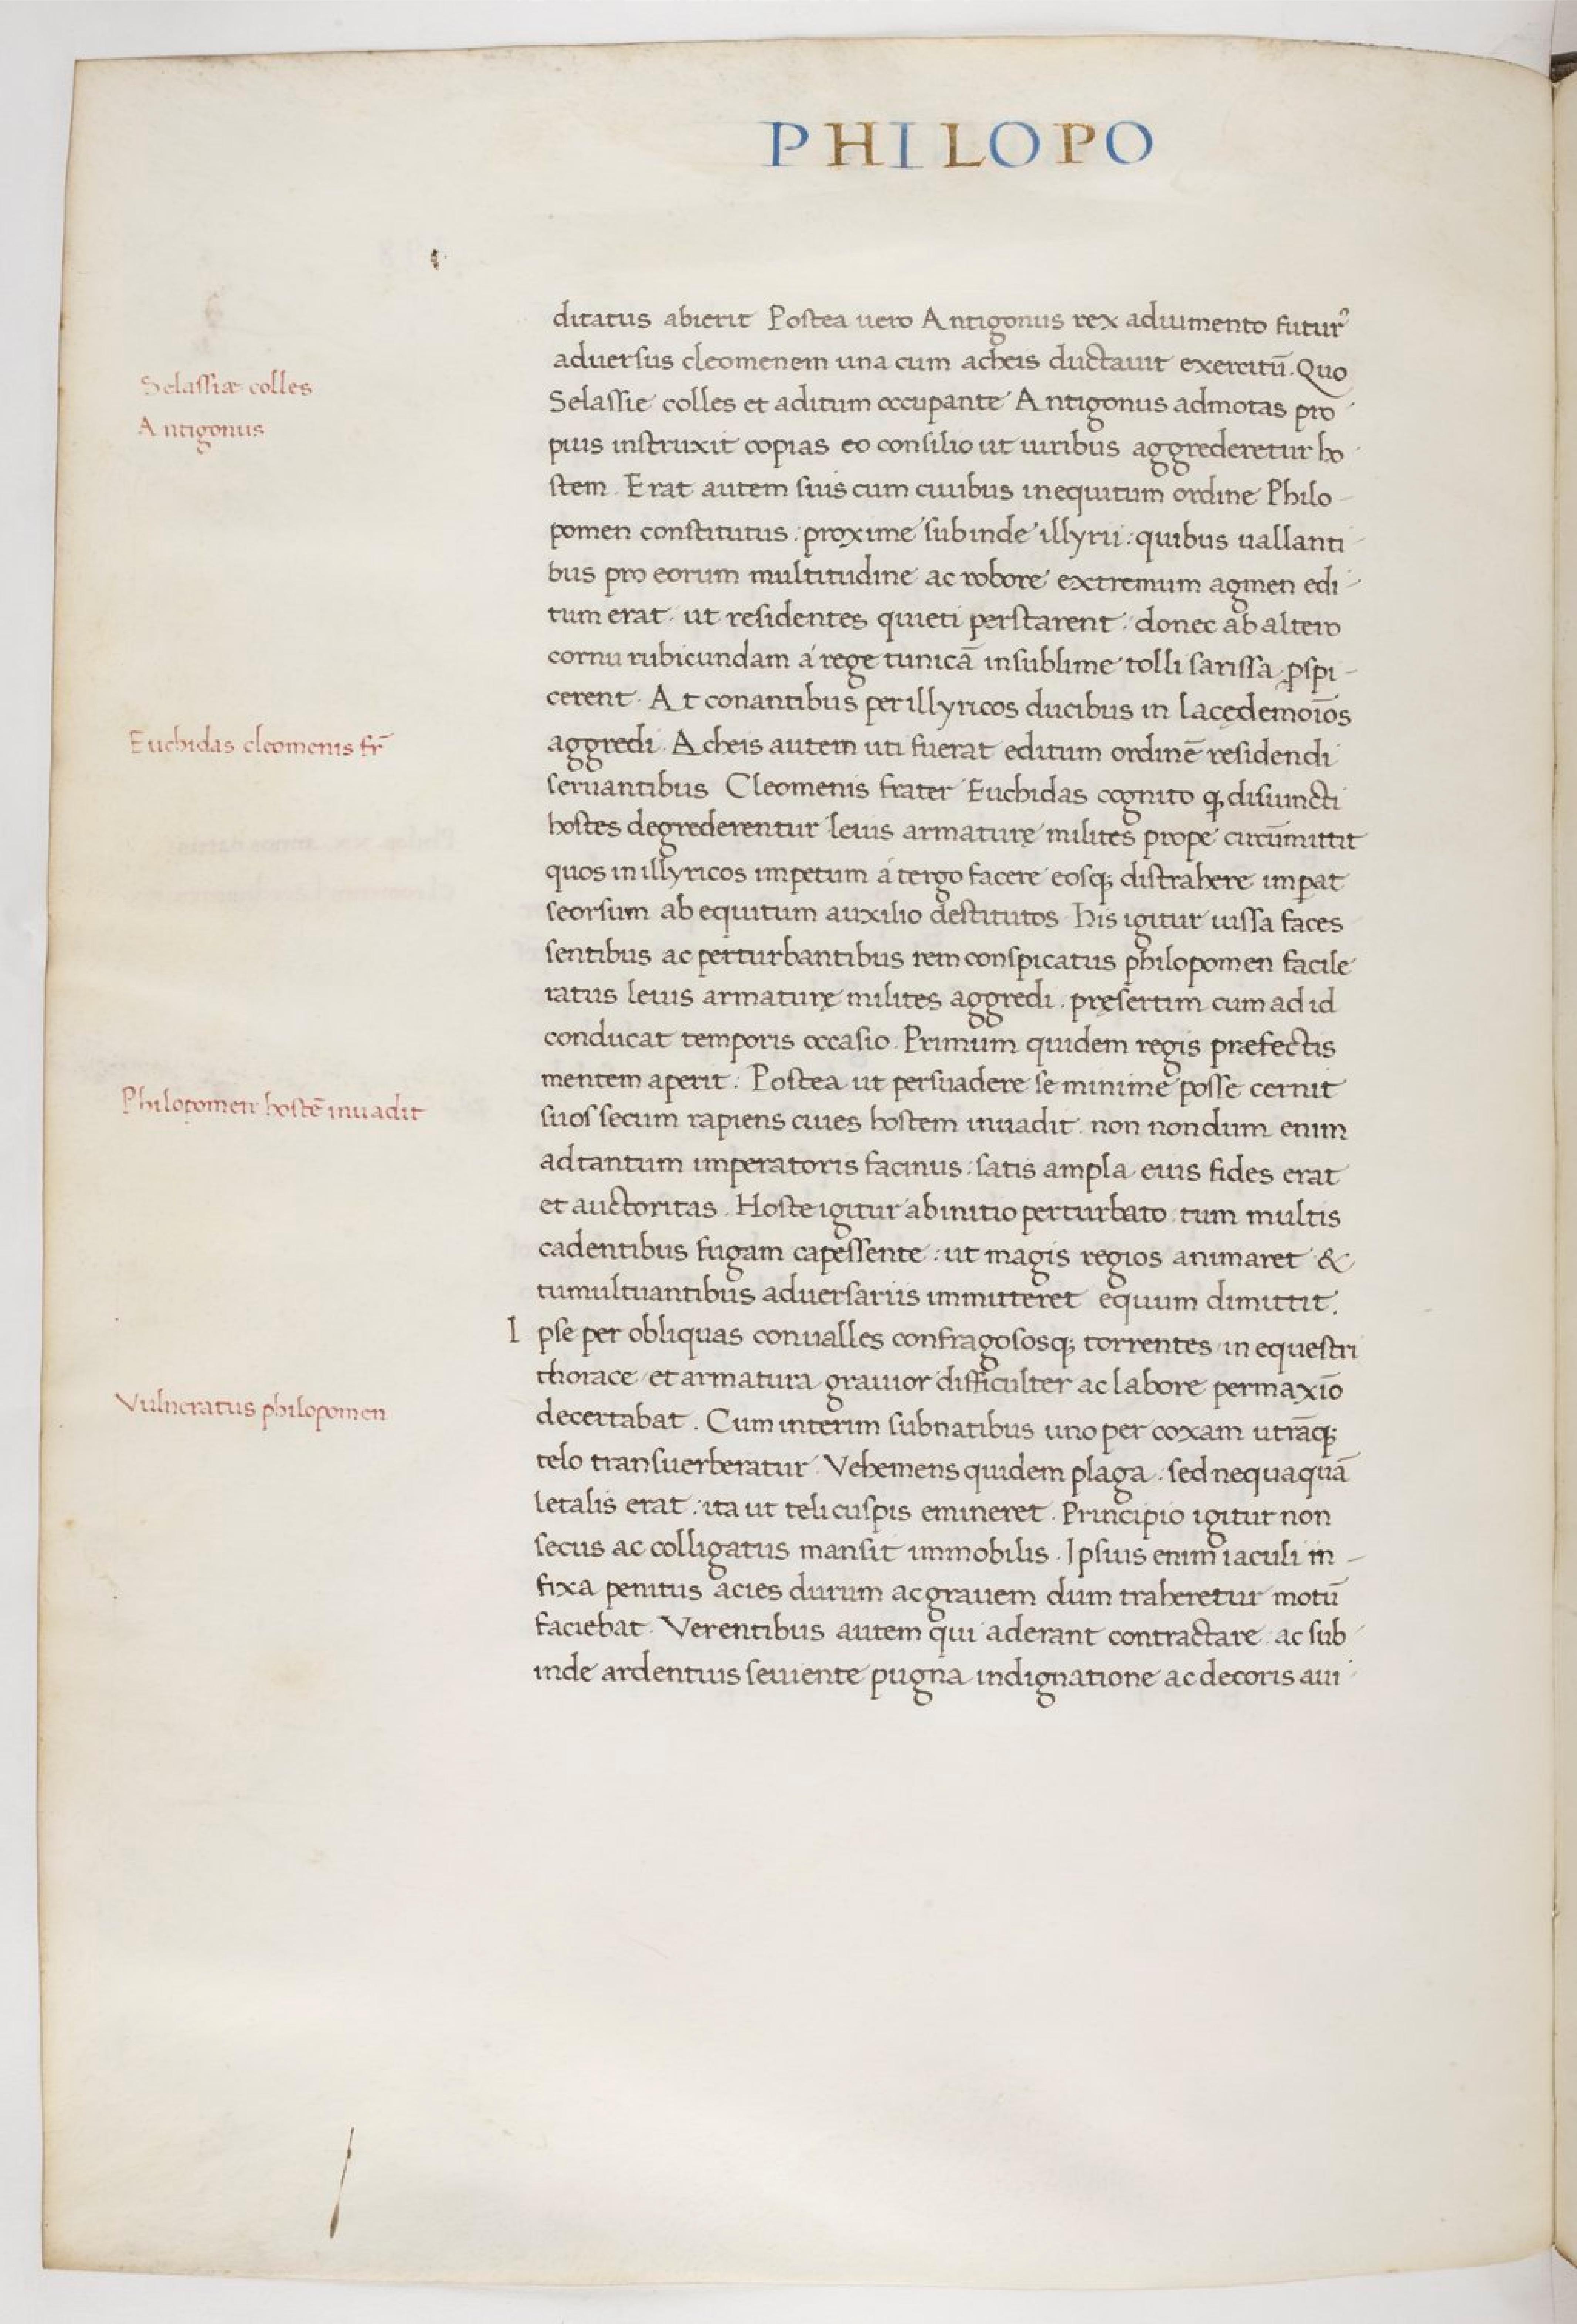 PHILOPO
ditatus abierit Postea uero Antigonus rex adiumento futurꝰ
aduersus cleomenem una cum acheis ductauit exercitū. Quo
Selassiæ colles
Selassie colles et aditum occupante Antigonus admotas pro
Antigonus
pius instruxit copias eo consilio ut uiribus aggrederetur ho
stem. Erat autem suis cum ciuibus inequitum ordine Philo-
pomen constitutus: proxime subinde illyrii: quibus uallanti-
bus pro eorum multitudine ac robore extremum agmen edi-
tum erat. ut residentes quieti perstarent. donec ab altero
cornu rubicundam á rege tunicā insublime tolli sarissa ꝓspi-
cerent. At conantibus per illyricos ducibus in lacędemoīos
Euchidas cleomenis fr̄
aggredi. Acheis autem uti fuerat editum ordinē residendi
seruantibus Cleomenis frater Euchidas cognito ꝙ disiuncti
hostes degrederentur leuis armaturę milites prope circūmittit
quos in illyricos impetum á tergo facere eosq; distrahere imꝑat
seorsum ab equitum auxilio destitutos. his igitur iussa faces
sentibus ac perturbantibus rem conspicatus philopomen facile
ratus leuis armaturę milites aggredi. pręsertim cum ad id
conducat temporis occasio. Primum quidem regis præfectis
mentem aperit: Postea ut persuadere se minime posse cernit
Philopomen hostē inuadit
suos secum rapiens ciues hostem inuadit. non nondum enim
adtantum imperatoris facinus: satis ampla eius fides erat
et auctoritas. Hoste igitur abinitio perturbato tum multis
cadentibus fugam capessente: ut magis regios animaret &
tumultuantibus aduersariis immitteret equum dimittit.
Ipse per obliquas conualles confragososq; torrentes in equestri
thorace et armatura grauior difficulter ac labore permaxīo
Vulneratus philopomen
decertabat. Cum interim subnatibus uno per coxam utrāq;
telo transuerberatur. Vehemens quidem plaga: sed nequaquā
letalis erat: ita ut teli cuspis emineret. Principio igitur non
secus ac colligatus mansit immobilis. Ipsius enim iaculi in-
fixa penitus acies durum ac grauem dum traheretur motū
faciebat. Verentibus autem qui aderant contractare ac sub
inde ardentius seuiente pugna indignatione ac decoris aui